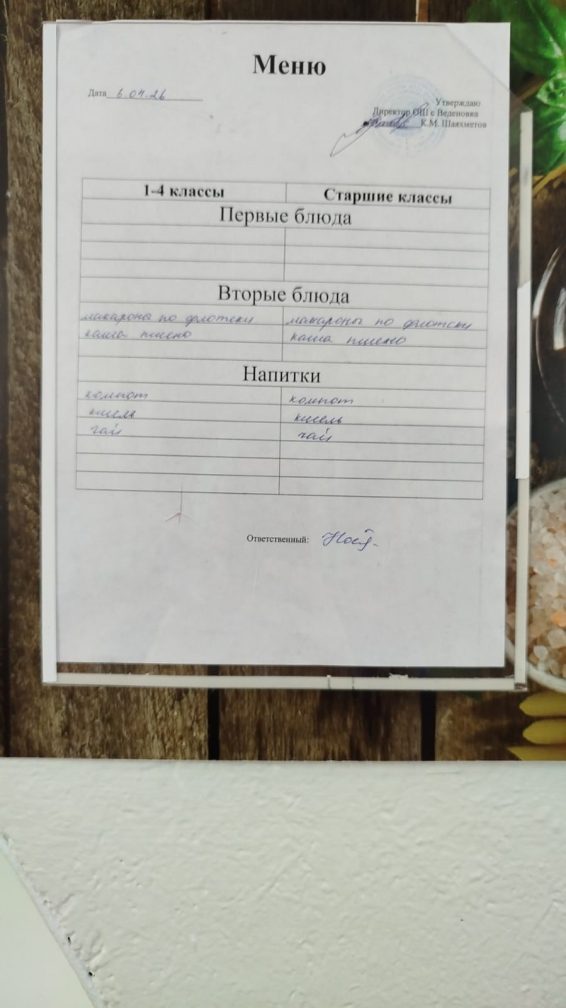 Меню
Дата 6.04.26
Утверждаю
Директор ОШ с Веденовка
К.М. Шаяхметов
1-4 классы Старшие классы
Первые блюда
Вторые блюда
макароны по флотски макароны по флотски
каша пшено каша пшено
Напитки
компот компот
кисель кисель
чай чай
Ответственный: